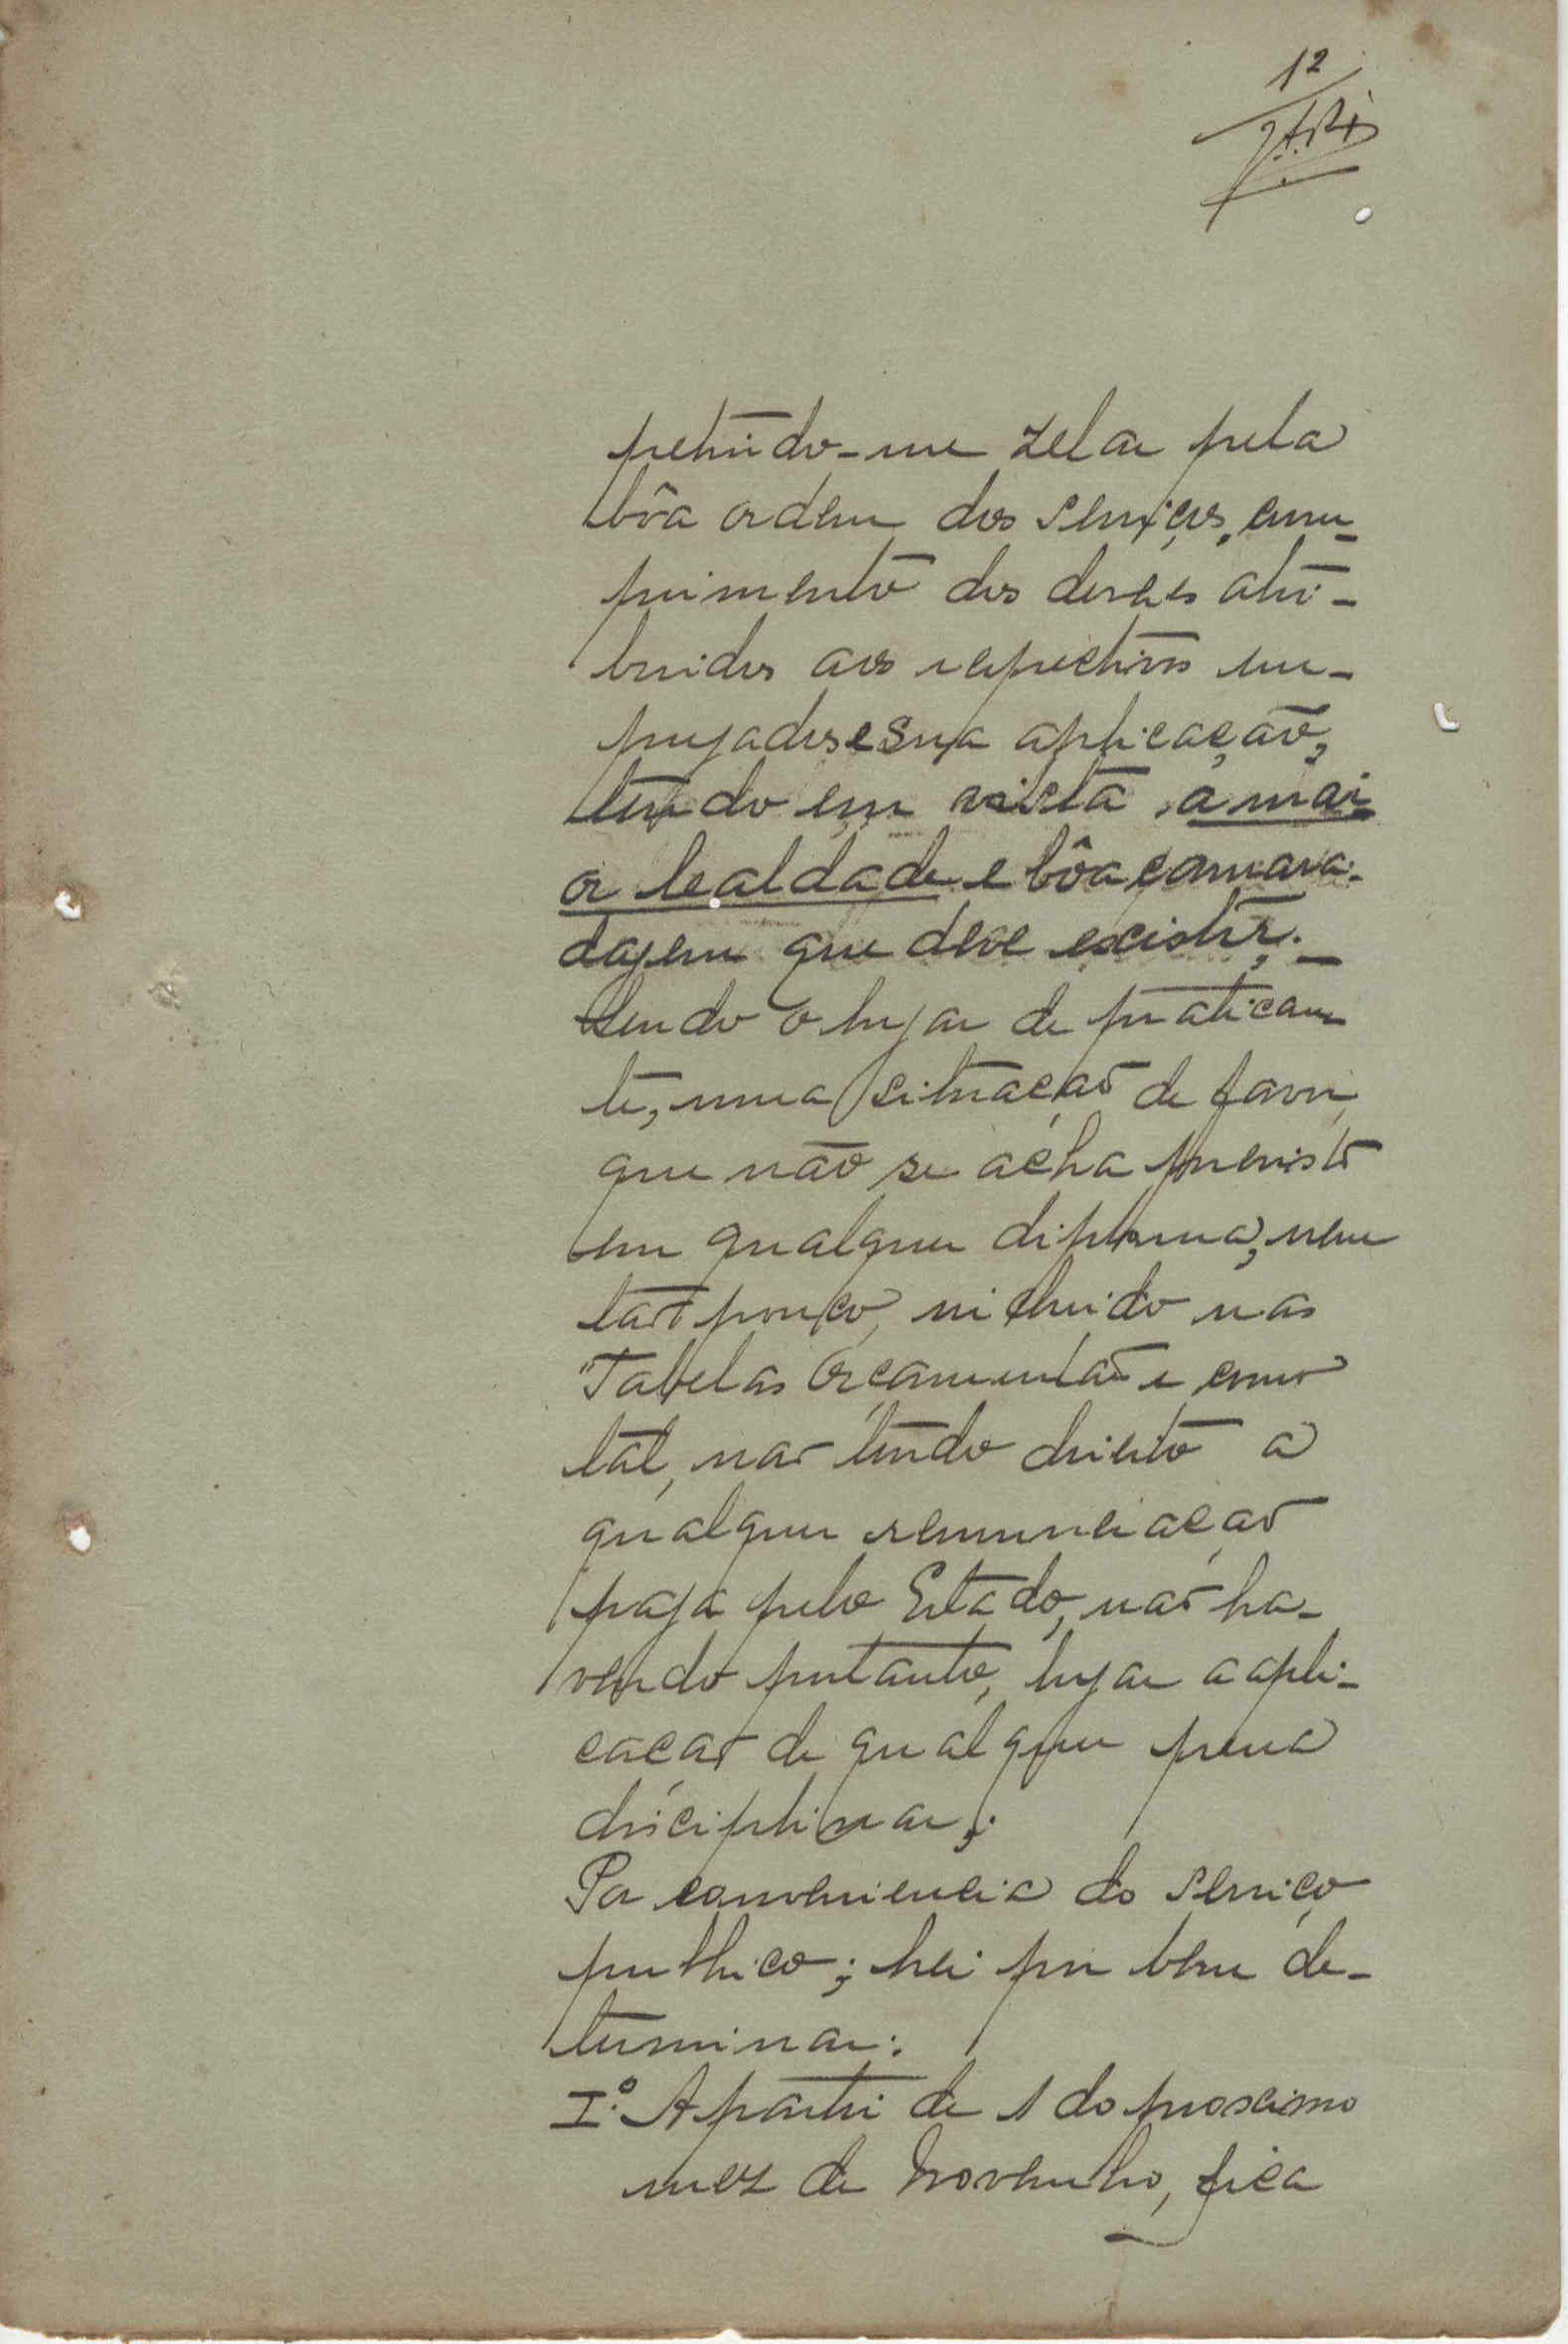 12
petindo-me zelar pela
bôa ordem dos serviços, cum-
primento dos deveres atri-
buidos aos respectivos em-
pregados e sua aplicação,
tendo em vista a mai-
or lealdade e bôa camara-
dagem que deve existir. —
Sendo o lugar de pratican-
te, uma situação de favor
que não se acha previsto
em qualquer diploma, nem
tão pouco, incluido nas
Tabelas Orçamentaes e como
tal, não tendo direito a
qualquer remuneração
paga pelo Estado, não ha-
vendo portanto, lugar a apli-
cação de qualquer pena
disciplinar;
Por conveniencia do serviço
publico; hei por bem de-
terminar:
I.º A partir de 1 do proximo
mez de Novembro, fica